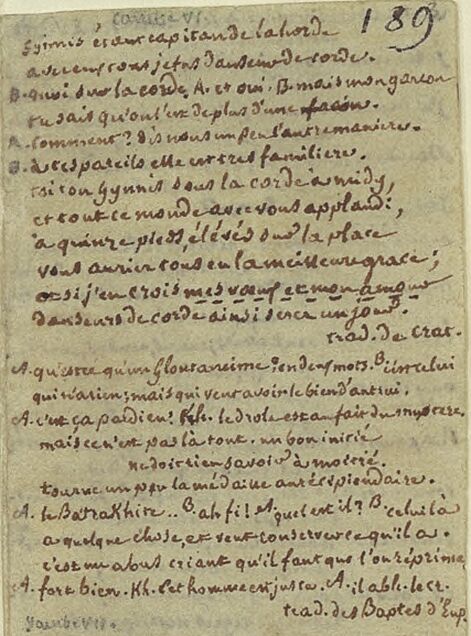 ïambe VI.
189
Gymnis étant capitan de la horde
avec eux tous je fus danseur de corde.
B. quoi sur la corde, A. et oui. B. mais mon garcon
tu sais qu'on l'est de plus d'une facon.
A. comment? dis nous un peu l'autre maniere.
B. à tes pareils elle est tres familiere.
toi ton Gymnis sous la corde à midy,
et tout ce monde avec vous applaudi,
à quinze pieds, élévés sur la place
vous auriez tous eu la meilleure grace;
et si j'en crois mes vœux et mon amour
danseurs de corde ainsi serez un jour.
trad. de Crat.
A. qu'est ce qu'un Gloutancime? en deux mots. B. c'est celui
qui n'a rien; mais qui veut avoir le bien d'autrui.
A. c'est ça pardieu! Kh. le drole est au fait du mystere,
mais ce n'est pas là tout. un bon initié
ne doit rien savoir à moitié.
tourne un peu la médaille au récipiendaire.
A. le Batrakhite.. B. ah fi! A. quel est il? B. celui là
a quelque chose, et veut conserver ce qu'il a.
c'est un abus criant qu'il faut que l'on réprime
A. fort bien. Kh. cet homme est jusca. A. il a bl. le cr.
trad. des Baptes d'Eup.
ïambe VII.